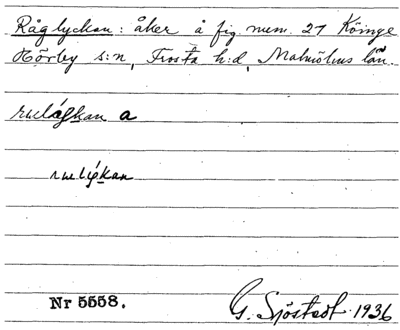 Råglyckan: åker å fig. num. 27 Köinge
Hörby s:n, Frosta h:d, Malmöhus län.
a
Nr 5558.
G. Sjöstedt 1936